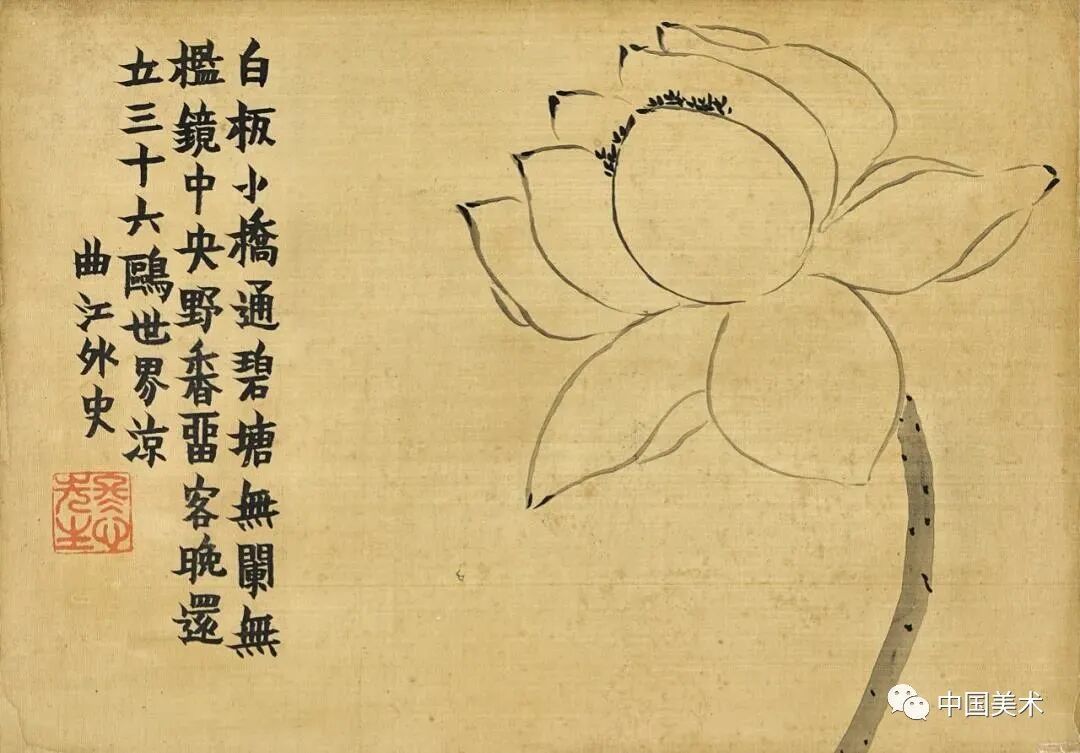 白板小橋通碧塘無闌無
檻鏡中央野香畱客晚還
立三十六鷗世界涼
曲江外史
冬心先生
中国美术